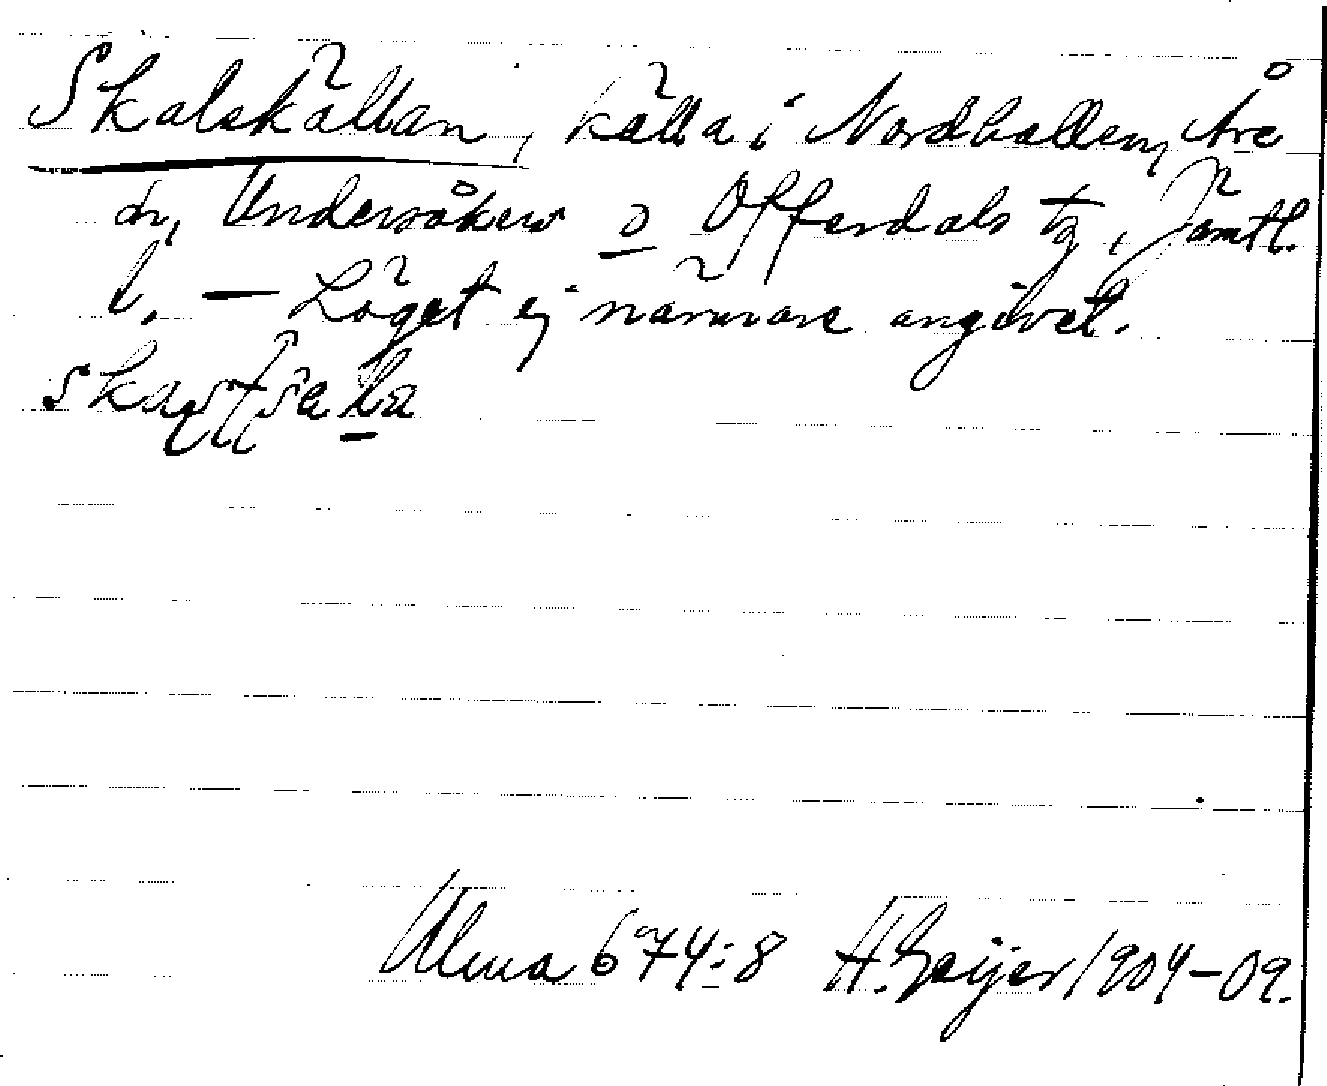 Skalskällan, källa i Nordhallen, Åre
sn, Undersåkers o Offerdals tg, Jämtl.
l. — Läget ej närmare angivet.
Ulma 674:8 H. Geijer 1904-09.